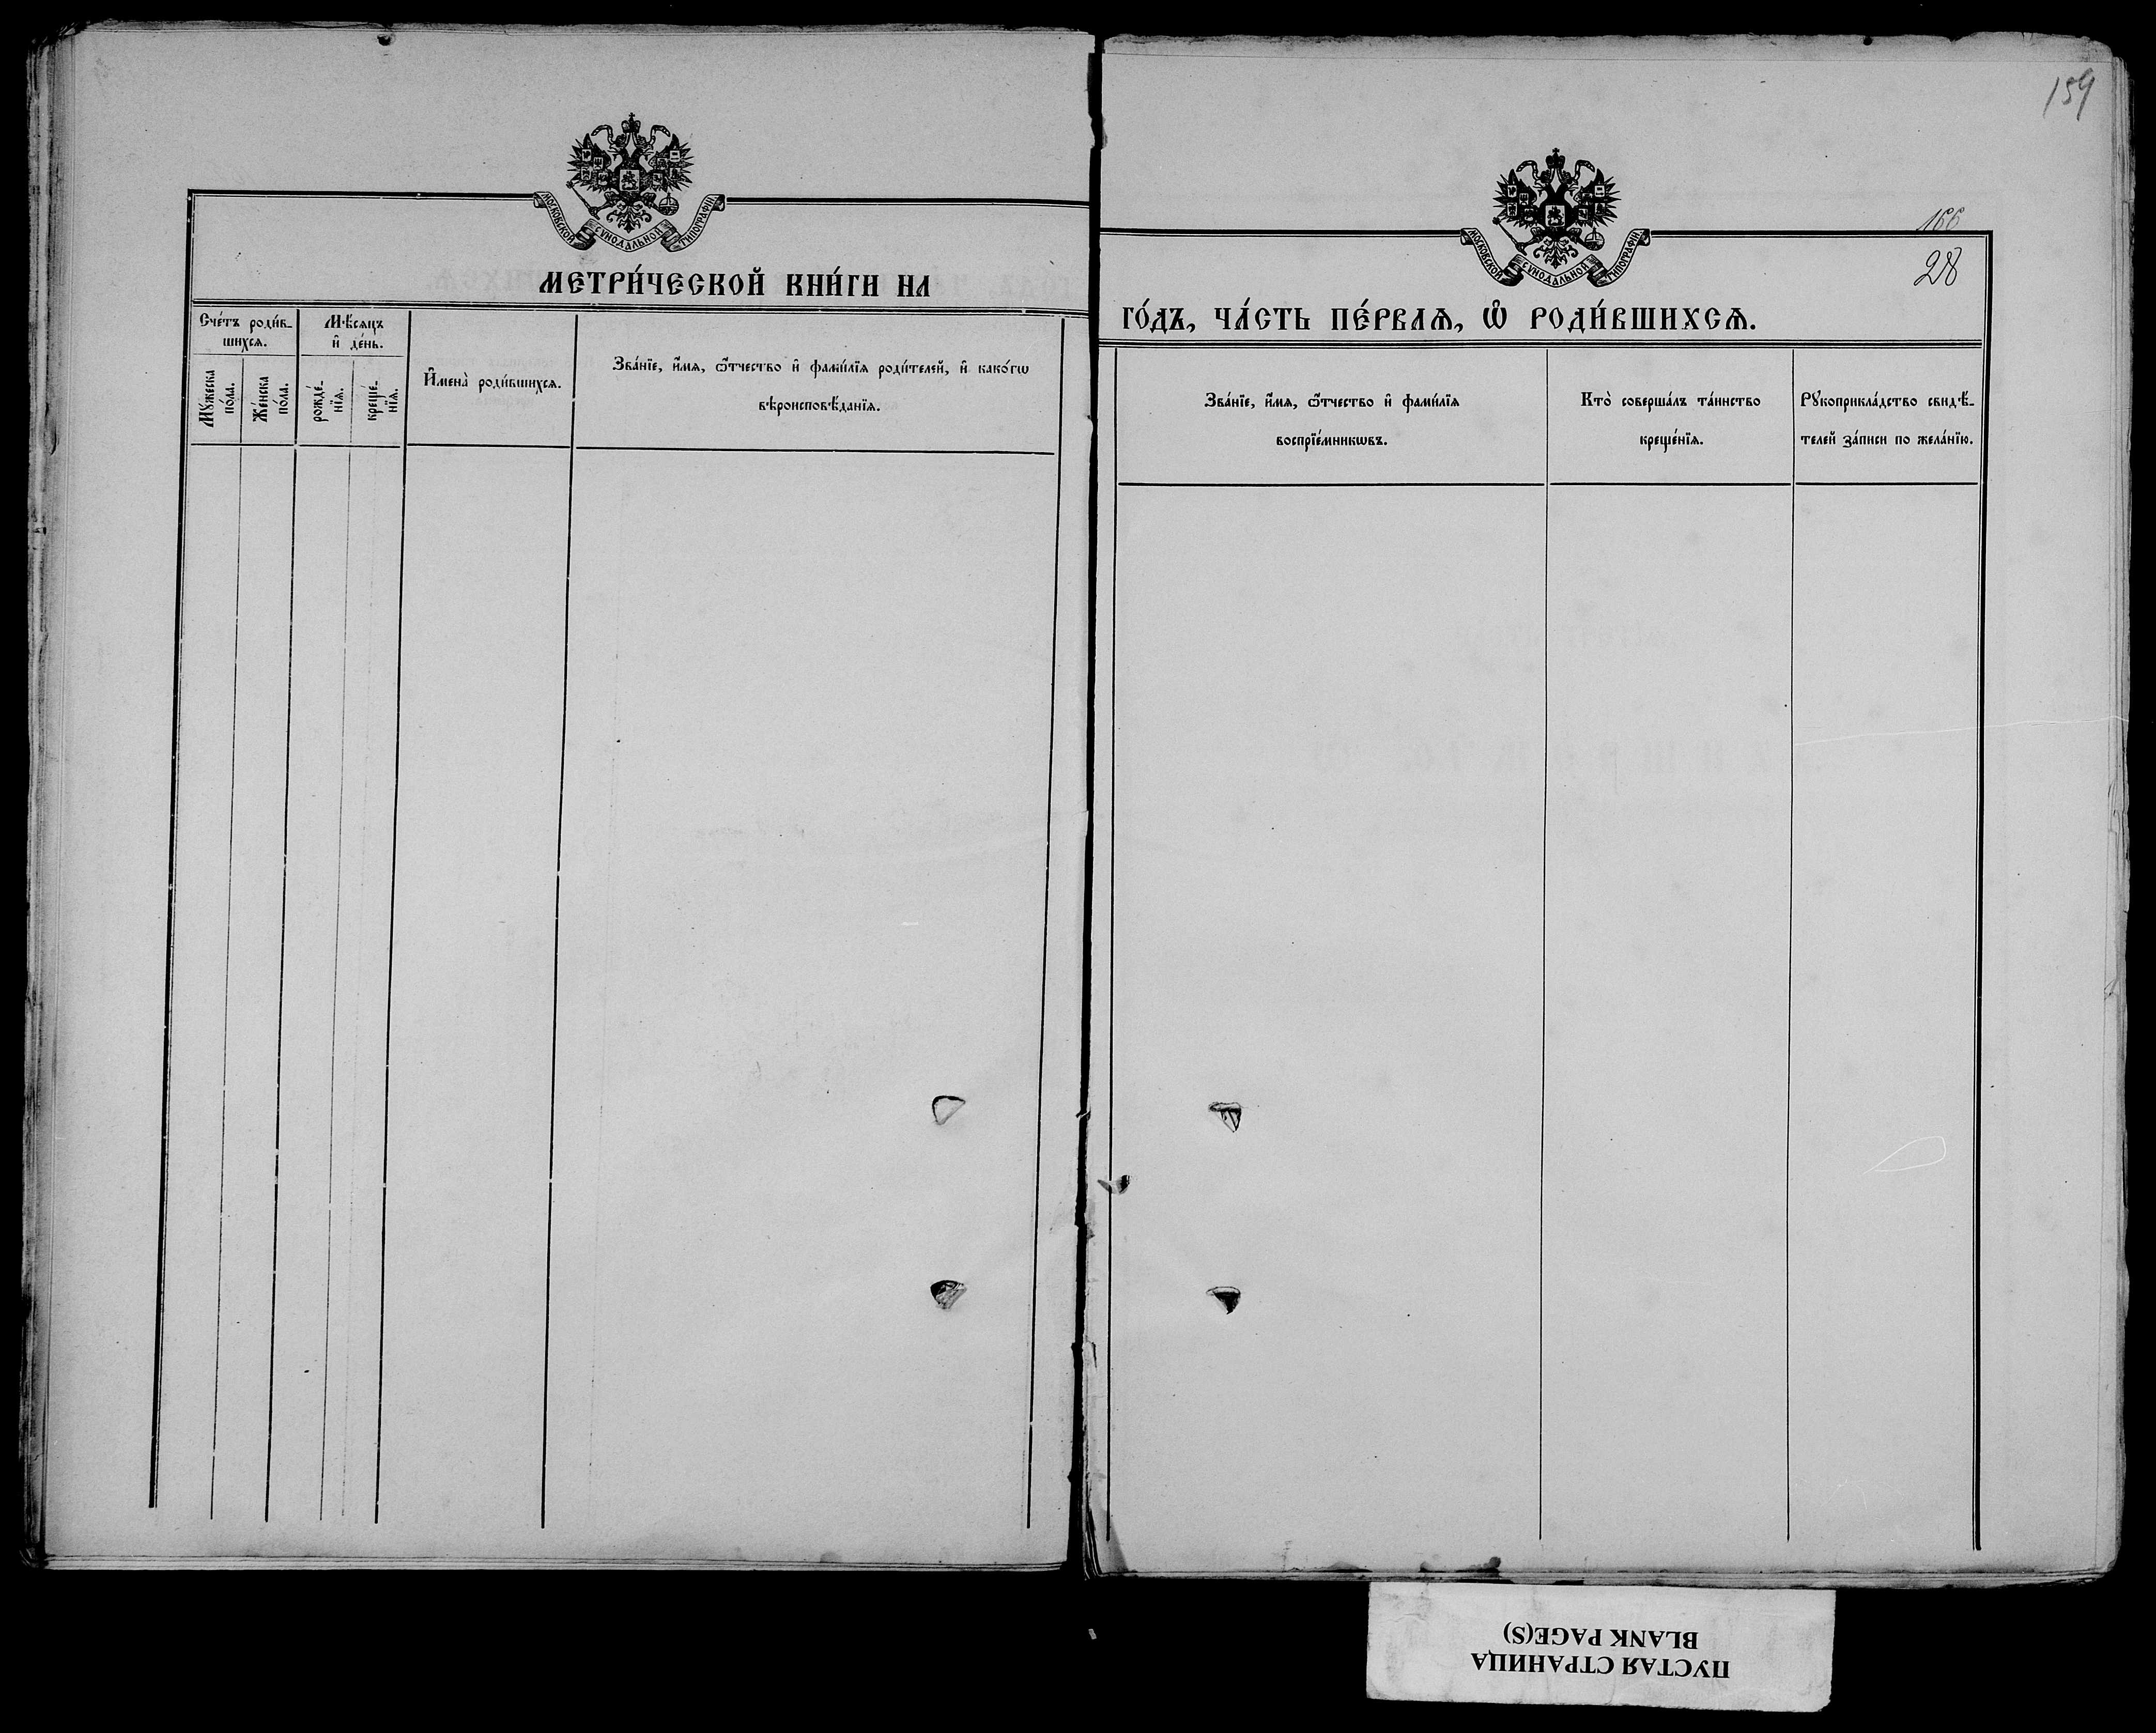 МОСКОВСКОЙ СѴНОДАЛЬНОЙ ТИПОГРАФІИ
МЕТРИ́ЧЕСКОЙ КНИ́ГИ НА
Сче́тъ роди́в-
шихсѧ.
Мѣ́сѧцъ
и҆ де́нь.
Мꙋ́жеска
по́ла.
Же́нска
по́ла.
рожде́-
нїѧ.
креще́-
нїѧ.
И҆мена̀ роди́вшихсѧ.
Зва́нїе, и҆́мѧ, ѻ҆́тчество и҆ фами́лїѧ роди́телей, и҆ како́гѡ
вѣроисповѣ́данїѧ.
159
МОСКОВСКОЙ СѴНОДАЛЬНОЙ ТИПОГРАФІИ
166
28
ГО́ДЪ, ЧА́СТЬ ПЕ́РВАѦ, Ѡ҆ РОДИ́ВШИХСѦ.
Зва́нїе, и҆́мѧ, ѻ҆́тчество и҆ фами́лїѧ
воспрїе́мникѡвъ.
Кто̀ соверша́лъ та́инство
креще́нїѧ.
Рꙋкоприкла́дство свидѣ́-
телей за́писи по жела́нїю.
ПУСТАЯ СТРАНИЦА
BLANK PAGE(S)